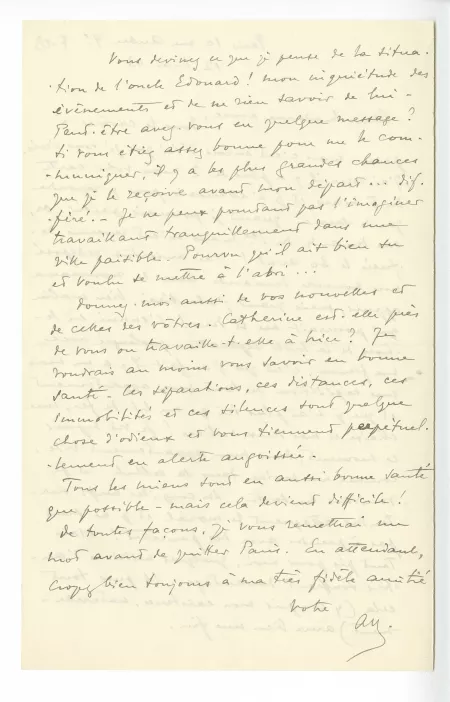 Vous devinez ce que je pense de la situa-
-tion de l'oncle Edouard! mon inquiétude des
évènements et de ne rien savoir de lui -
Peut-être avez-vous eu quelque message?
Si vous étiez assez bonne pour me le com-
-muniquer, il y a les plus grandes chances
que je le reçoive avant mon départ... dif-
-féré. - Je ne peux pourtant pas l'imaginer
travaillant tranquillement dans une
ville paisible. Pourvu qu'il ait bien su
et voulu se mettre à l'abri...
Donnez-moi aussi de vos nouvelles et
de celles des vôtres. Catherine est-elle près
de vous ou travaille-t-elle à Nice? Je
voudrais au moins vous savoir en bonne
santé. Ces séparations, ces distances, ces
immobilités et ces silences sont quelque
chose d'odieux et vous tiennent perpétuel-
-lement en alerte angoissée.
Tous les miens sont en aussi bonne santé
que possible - mais cela devient difficile!
De toutes façons, je vous remettrai un
mot avant de quitter Paris. En attendant,
croyez bien toujours à ma très fidèle amitié
Votre